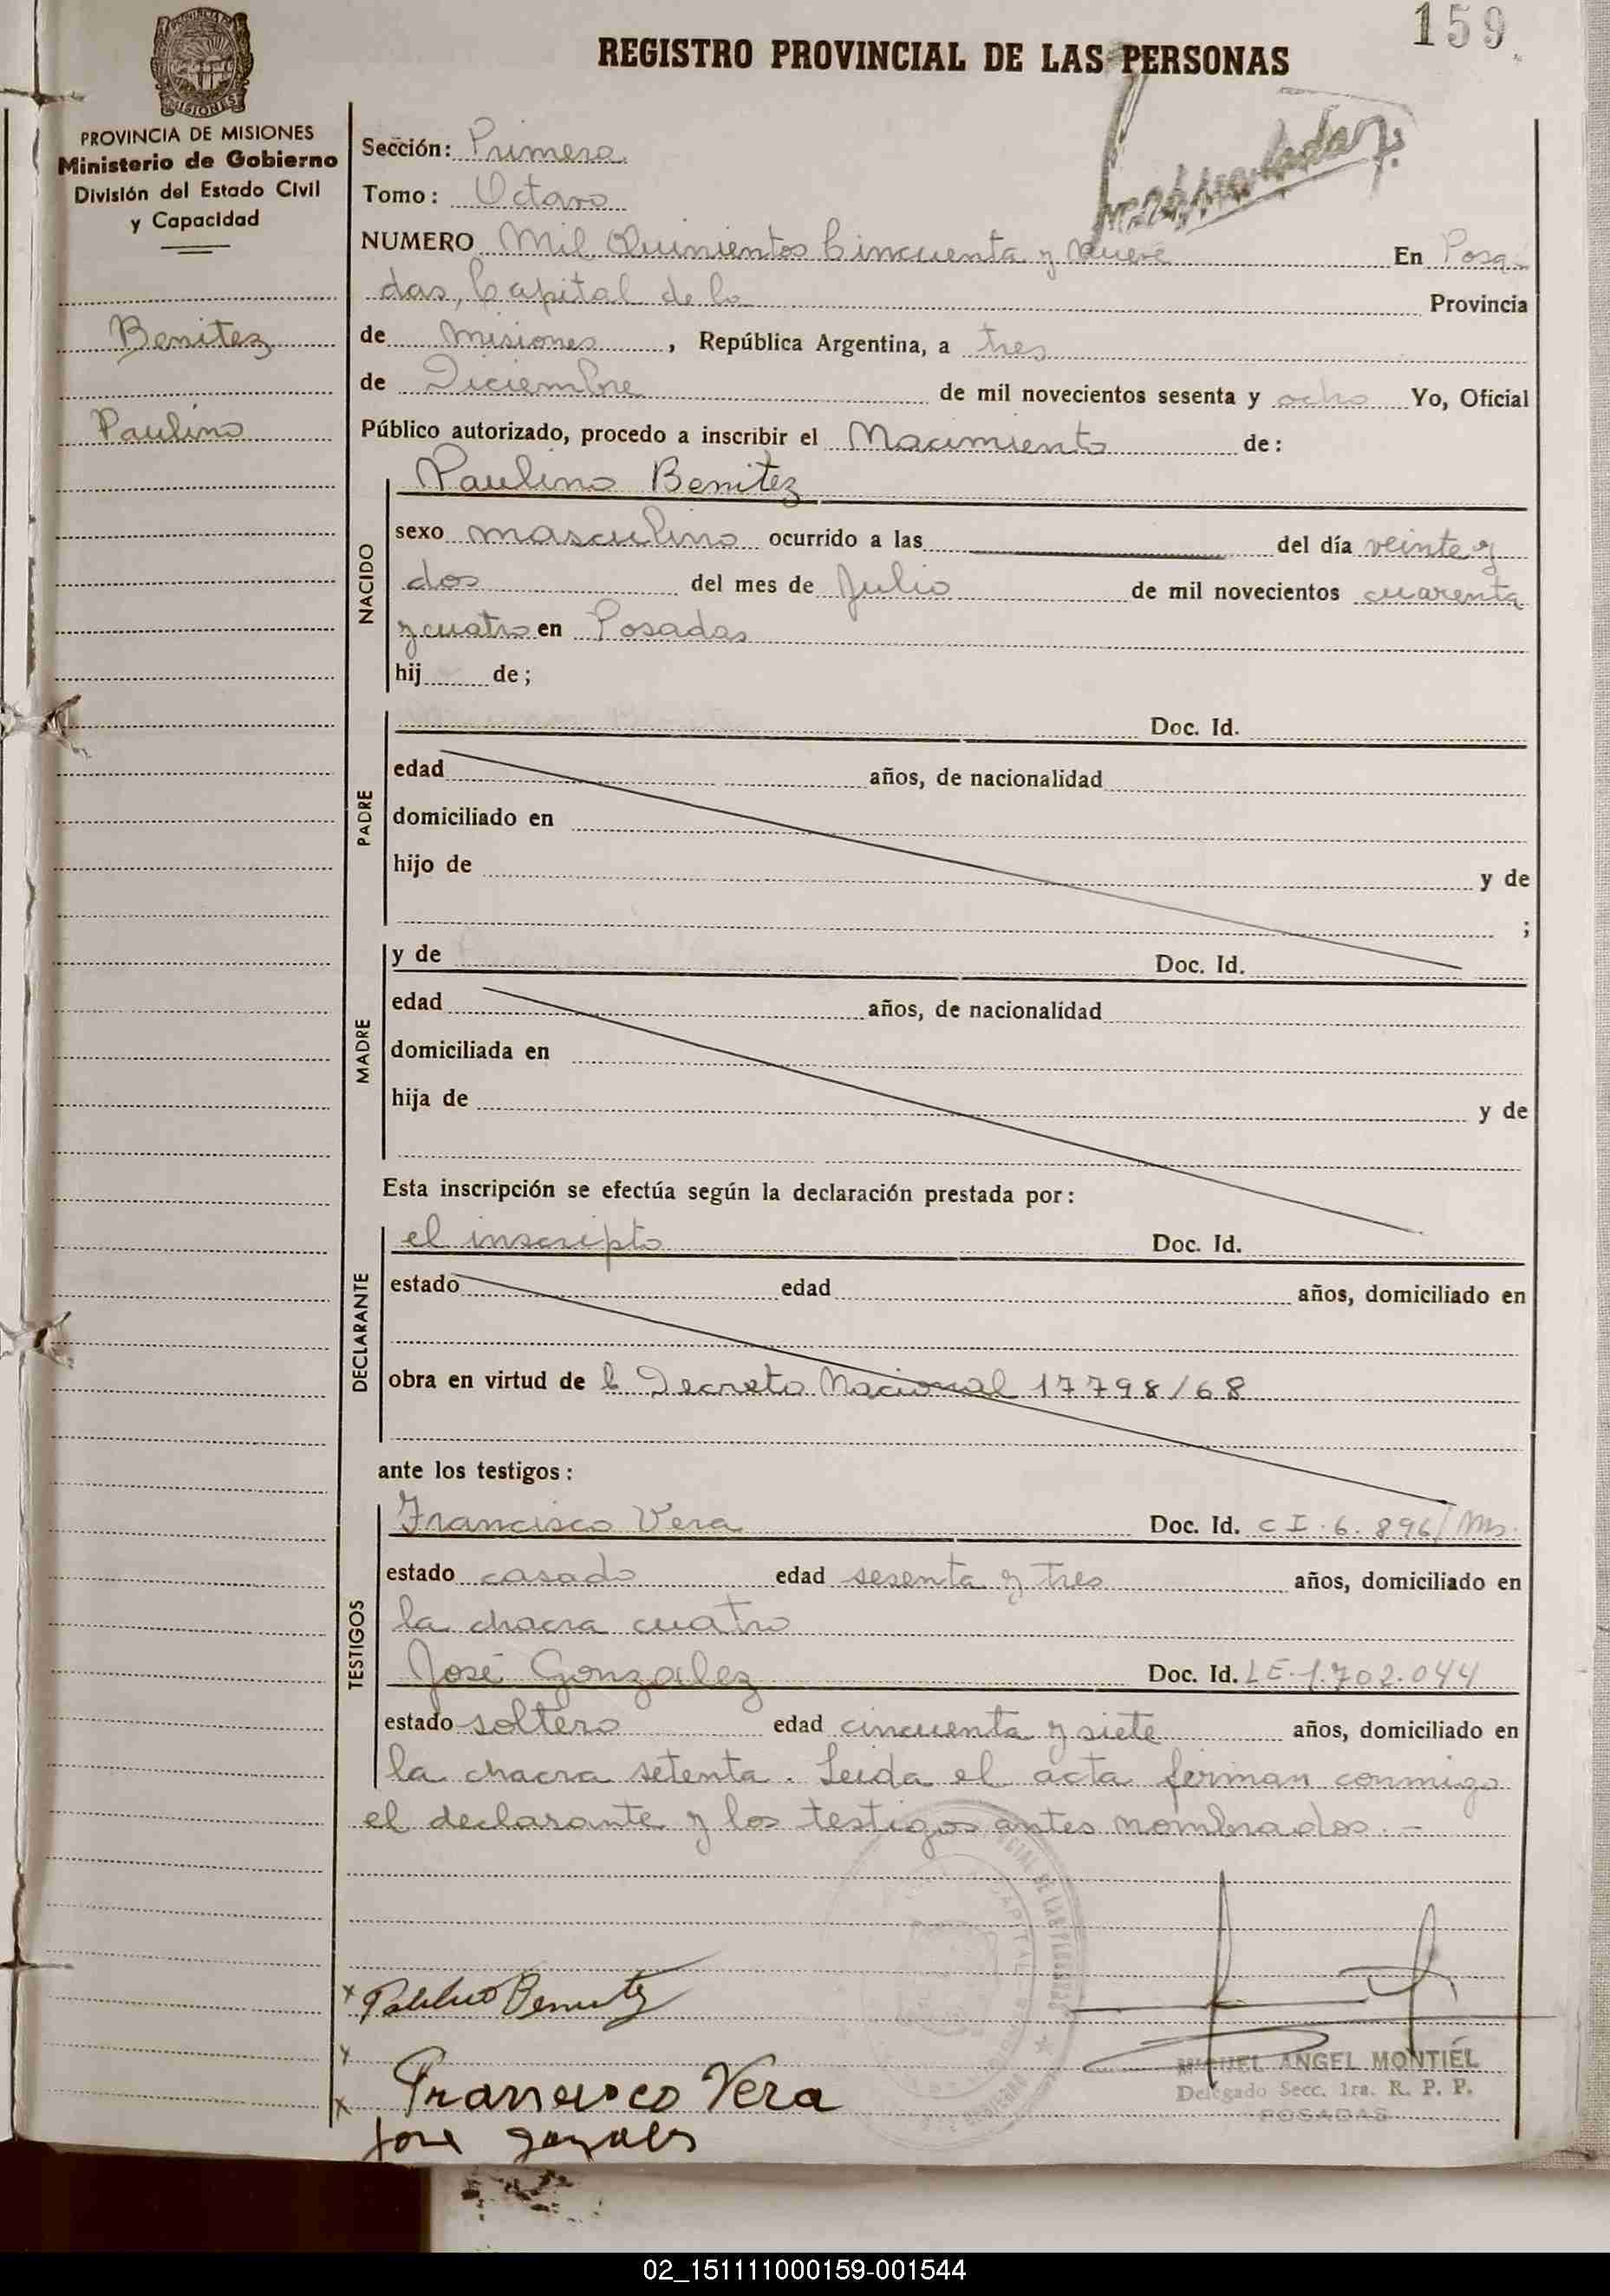 159
REGISTRO PROVINCIAL DE LAS PERSONAS
PROVINCIA DE MISIONES
Ministerio de Gobierno
División del Estado Civil
y Capacidad
Benitez
Paulino
Sección: Primera
Tomo: Octavo
NUMERO Mil Quinientos Cincuenta y Nueve En Posa-
das, Capital de la Provincia
de Misiones, República Argentina, a tres
de Diciembre de mil novecientos sesenta y ocho Yo, Oficial
Público autorizado, procedo a inscribir el Nacimiento de:
Paulino Benitez
NACIDO
sexo masculino ocurrido a las del día veinte y
dos del mes de Julio de mil novecientos cuarenta
y cuatro en Posadas
hij de;
PADRE
Doc. Id.
edad años, de nacionalidad
domiciliado en
hijo de y de
;
MADRE
y de Doc. Id.
edad años, de nacionalidad
domiciliada en
hija de y de
Esta inscripción se efectúa según la declaración prestada por:
DECLARANTE
el inscripto Doc. Id.
estado edad años, domiciliado en
obra en virtud de Decreto Nacional 17798/68
ante los testigos:
TESTIGOS
Francisco Vera Doc. Id. C I. 6. 896/Ms.
estado casado edad sesenta y tres años, domiciliado en
la chacra cuatro
José Gonzalez Doc. Id. LE. 1.702.044
estado soltero edad cincuenta y siete años, domiciliado en
la chacra setenta. Leida el acta firman conmigo
el declarante y los testigos antes nombrados.-
Benitez
Francisco Vera
MIGUEL ANGEL MONTIEL
Delegado Secc. 1ra. R. P. P.
POSADAS
02_151111000159-001544